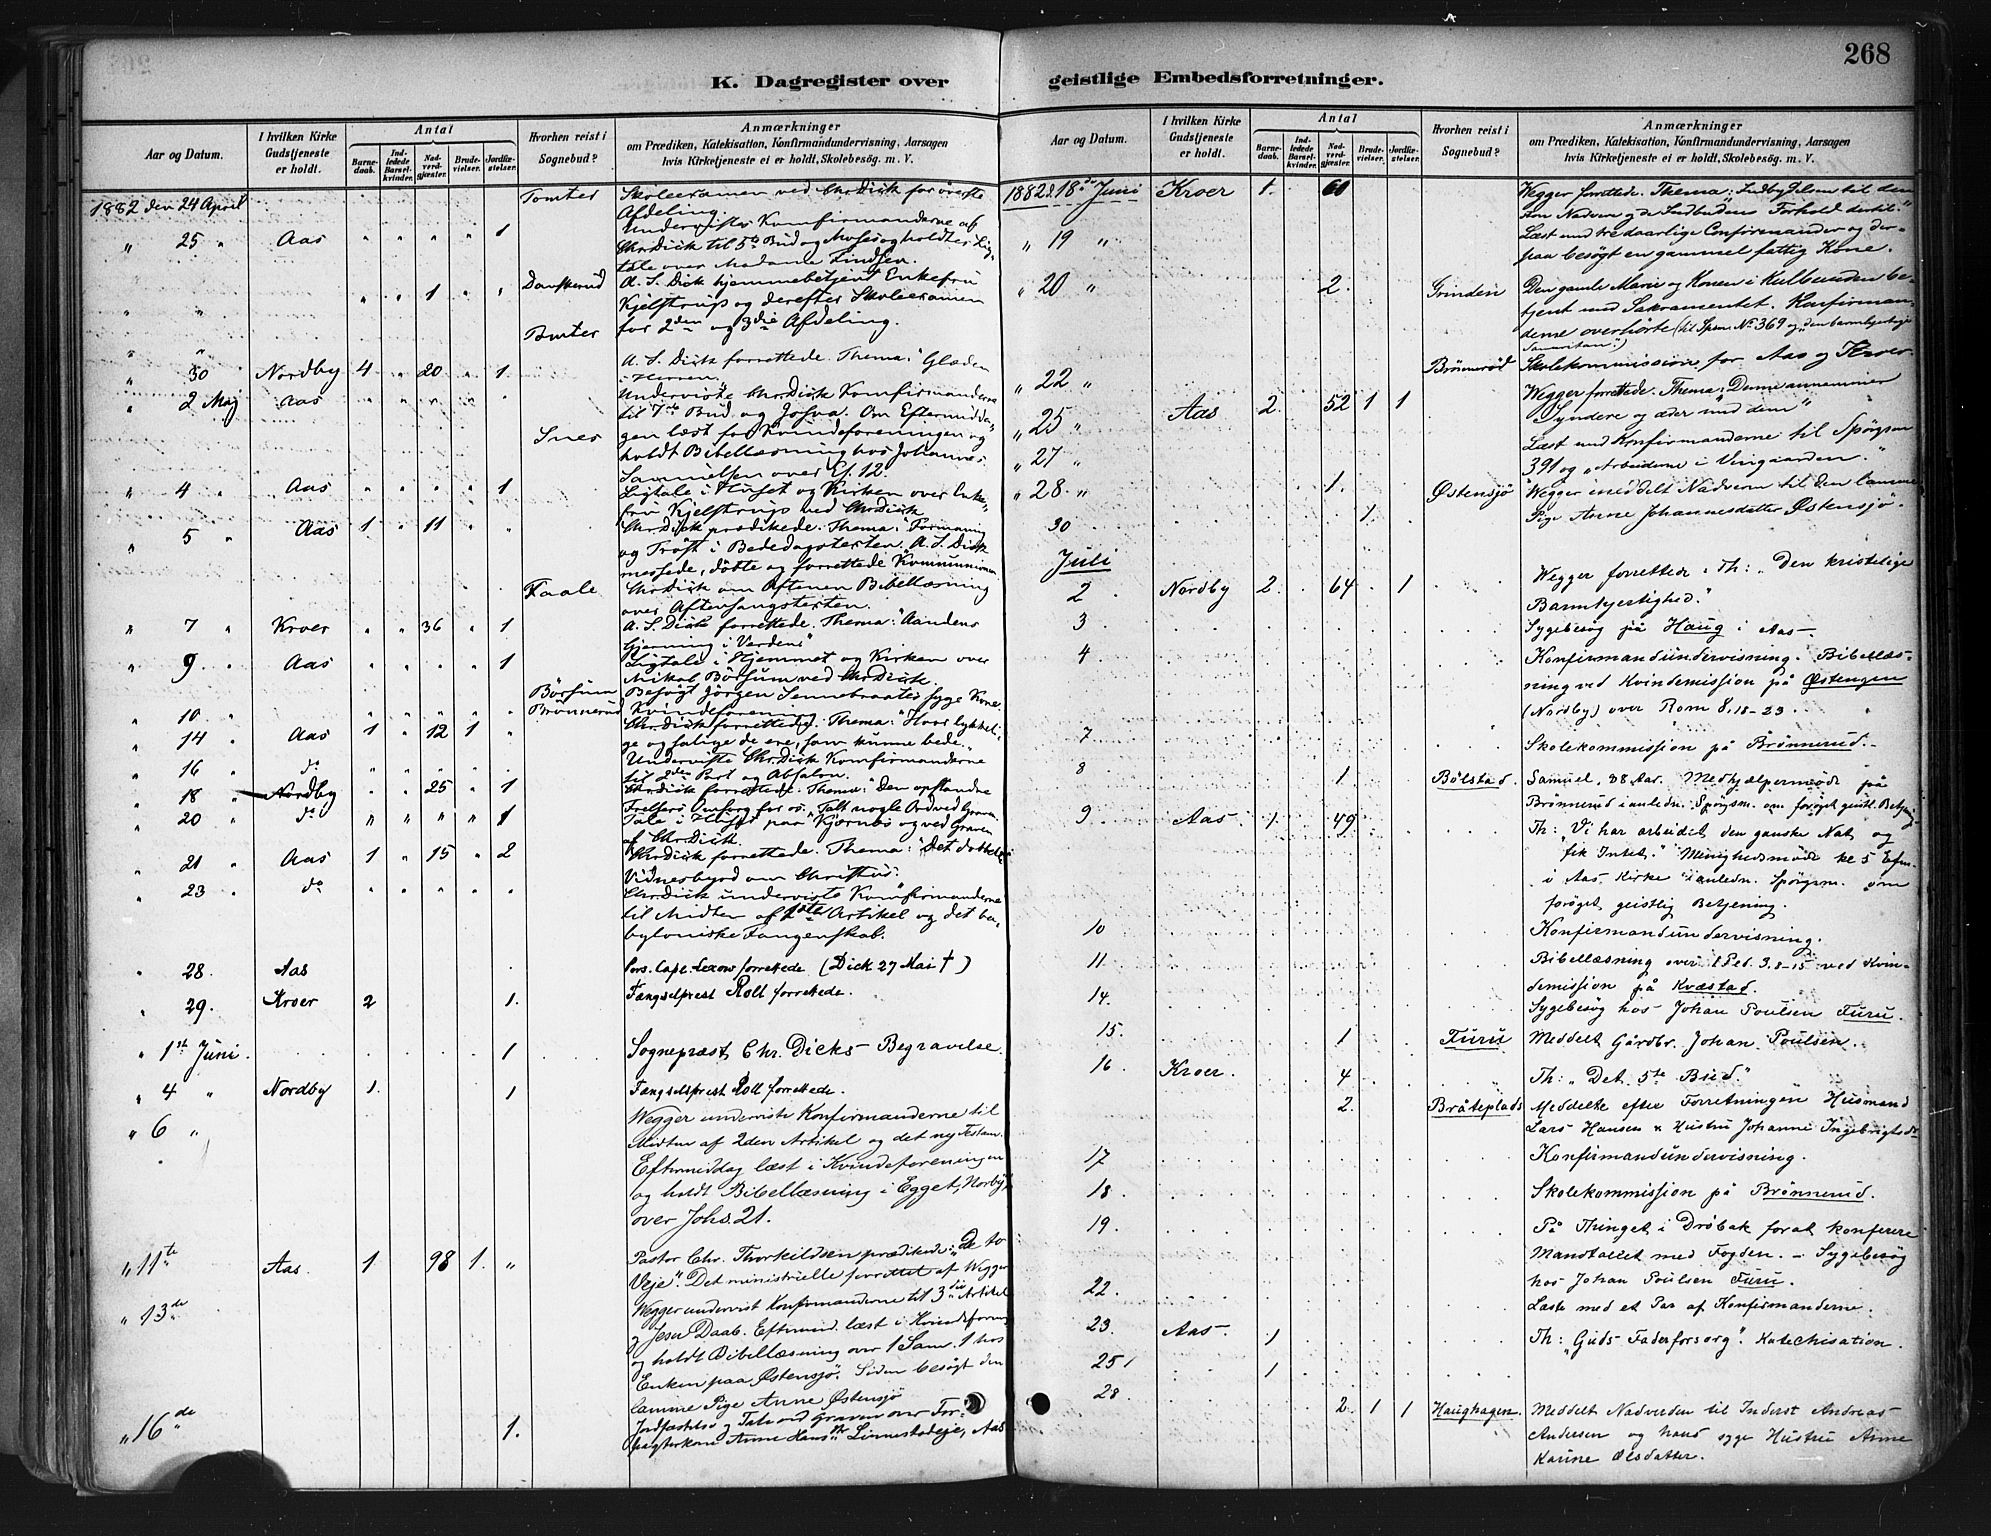 268
K. Dagregister over geistlige Embedsforretninger.
Aar og Datum.
I hvilken Kirke Gudstjeneste er holdt.
Antal
Barnedaab.
Indledede Barselkvinder.
Nadverdgjæster.
Brudevielser.
Jordfæstelser.
Hvorhen reist i Sognebud?
Anmærkninger
om Prædiken, Katekisation, Konfirmandundervisning, Aarsagen
hvis Kirketjeneste ei er holdt, Skolebesøg. m. V.
1882 den 24 April Tomter Skoleexamen ved Chr. Dick for øverste
Afdeling.
" 25 " Aas " " " " 1 Underviste Konfirmanderne af
Chr. Dick til 5te Bud og Moses og holdtes Lig-
tale over Madame Lindsen.
" " " " 1 " " A. S. Dick hjemmebetjent Enkefru
Kjelstrup og derefter Skoleexamen
" " Tomter for 2den og 3die Afdeling.
" 30 Nordby 4 " 20 " 1. A. S. Dick forrettede. Thema: "Glæden
i Herren"
" 2 Maj Aas " " " " Underviste Chr. Dick Konfirmanderne
til 7de Bud og Josva. Om Eftermidda-
gen læst for Kvindeforeningen og
holdt Bibellæsning hos Johannes
Samuelsen over Ef. 12.
" 4 " Aas " " " " 1 Ligtale i Huset og Kirken over Enke-
fru Kjelstrup ved Chr. Dick
" 5 " Aas 1 " 11 " " Chr. Dick prædikede. Thema: "Formaning
og Trøst i Bededagstexten. A. S. Dick
messede, døbte og forrettede Kommunionen
Faale Chr. Dick om Aftenen Bibellæsning
over Aftensangstexten.
" 7 " Kroer " " 36 " 1 A. S. Dick forrettede. Thema: "Aandens
Gjerning i Verden"
" 9 " Aas " " " " 1 Ligtale i Hjemmet og Kirken over
Mikal Børsum ved Chr. Dick.
Børsum Besøgt Jørgen Sennebraates syge Kone.
" 10 " " " " " " Brønnerud Kvindeforening
" 14 " Aas 1 " 12 1 " Chr. Dick forrettede. Thema: "Hvor lykkeli-
ge og salige de ere, som kunne bede."
" 16 " do " " " " Underviste Chr. Dick Konfirmanderne
til 2den Part og Absalon.
" 18 " Nordby " " 25 " 1 Chr. Dick forrettede. Thema: "Den opstandne
Frelsers Omsorg for os. Talt nogle Ord ved Graven.
" 20 " do " " " " 1 Tale i Huset paa Kjærnes og ved Graven
af Chr. Dick.
" 21 " Aas 1 " 15 " 2 Chr. Dick forrettede. Thema: "Det dobbelte
Vidnesbyrd om Christus.
" 23 " do " " " " " Chr. Dick underviste Konfirmanderne
til Midten af 1ste Artikel og det ba-
byloniske Fangenskab.
" 28. Aas Pers. Capl. Lexow forrettede (Dick 27 Mai †)
" 29. Kroer 2 1. Fængselprest Roll forrettede.
" 1st Juni. 1 Sognepræst Chr. Dicks Begravelse.
" 4 " Nordby 1. 1 Fængselsprest Roll forrettede.
" 6 " Wegger underviste Konfirmanderne til
Midten af 2den Artikel og det ny Testam.
Eftermiddag læst i Kvindeforeningen
og holdt Bibellæsning i Egget, Norby,
over Johs. 21.
" 11te Aas. 1 98 1. " Pastor Chr. Thorkildsen prædikede: "De to
Veje". Det ministrielle forrettet af Wegger
" 13de Wegger undervist Konfirmanderne til 3die Artikel
og Jesu Daab. Eftermd. læst i Kvindeforening
og holdt Bibellæsning over 1 Sam. 1 hos
Enken paa Østensjø. Siden besøgt den
lamme Pige Anne Østensjø
" 16de 1. Jordfæstelse og Tale ved Graven over For-
pagterkone Anne Hansdtr Linnestadeje, Aas
1882 d. 18de Juni Kroer 1. 60 Wegger forrettede. Thema: Indbydelsen til den
store Nadvere og de Indbudnes Forhold dertil."
" 19 " Læst med tre daarlige Confirmander og der-
paa besøgt en gammel fattig Kone.
" 20 " 2. Grinden Den gamle Marie og Konen i Kulbunden be-
tjent med Sakramentet. Konfirman-
derne overhørte (til Spm. No 369 og "den barmhjertige
Samaritan".)
" 22 " Brønnerød Skolekommission for Aas og Kroer.
" 25 " Aas 2. 52 1 1 Wegger forrettede. Thema: Denne annammer
Syndere og æder med dem"
" 27 " Læst med Konfirmanderne til Spørgsm
391 og "Arbeiderne i Vingaarden."
" 28. " 1. Østensjø Wegger meddelt Nadvern til den lamme
30 1 Pige Anne Johannesdatter Østensjø.
Juli
2 Nordby 2. 64 1 Wegger forrettede. Th: "Den kristelige
Barmhjertighed."
3 Sygebesøg på Haug i Aas.
4 Konfirmandundervisning. Bibellæs-
ning ved Kvindemission på Østengen
(Nordby) over Rom 8,18-23.
7 Skolekommission på Brønnerud.
8 1. Bølstad. Samuel, 88 Aar. Medhjælpermøde på
Brønnerud i anledn. Spørgsm. om forøget geistl. Betjening
9 Aas. 1 49 Th: "Vi har arbeidet den ganske Nat og
fik Intet." Menighedsmøde kl 5 Efm.
i Aas Kirke i anledn. Spørgsm. om
forøget geistlig Betjening.
10 Konfirmandundervisning.
11 Bibellæsning over 1 Pet. 3,8-15 ved Kvin-
demission på Kvæstad.
14. Sygebesøg hos Johan Poulsen Furu.
15. 1 Furu Meddelt Gårdbr. Johan Poulsen.
16. Kroer. 4 Th: "Det 5te Bud."
2. Bråteplads Meddelte efter Forretningen Husmand
Lars Hansen & Hustru Johanne Ingebrigtsdr
17 Konfirmandundervisning.
18. Skolekommission på Brønnerud.
19. På Thinget i Drøbak forat konferere
Mandtallet med Fogden. – Sygebesøg
hos Johan Poulsen Furu.
22. Læste med et Par af Konfirmanderne.
23. Aas. 1 Th: "Guds Faderforsorg". Katechisation.
25 1
28. 2. 1 1 Haughagen. Meddelt Nadverden til Inderst Andreas
Andersen og hans syge Hustru Anne
Karine Olsdatter.